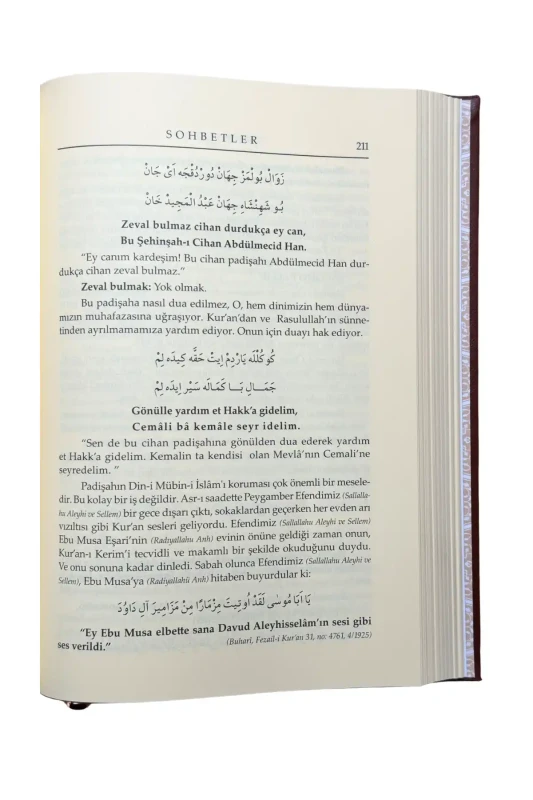 SOHBETLER 211
زَوَالْ بُولْمَزْ جِهَانْ دُورْدُقْجَه اَىْ جَانْ
بُو شَهِنْشَاهِ جِهَانْ عَبْدُ الْمَجِيدْ خَانْ
Zeval bulmaz cihan durdukça ey can,
Bu Şehinşah-ı Cihan Abdülmecid Han.
“Ey canım kardeşim! Bu cihan padişahı Abdülmecid Han dur-
dukça cihan zeval bulmaz.”
Zeval bulmak: Yok olmak.
Bu padişaha nasıl dua edilmez, O, hem dinimizin hem dünya-
mızın muhafazasına uğraşıyor. Kur’an’dan ve Rasulullah’ın sünne-
tinden ayrılmamamıza yardım ediyor. Onun için duayı hak ediyor.
كُوكُلْلَه يَارْدِمْ اِيتْ حَقَّه كِيدَه لِمْ
جَمَـالِ بَـا كَمَالَه سَيْر اِيدَه لِمْ
Gönülle yardım et Hakk’a gidelim,
Cemâli bâ kemâle seyr idelim.
“Sen de bu cihan padişahına gönülden dua ederek yardım
et Hakk’a gidelim. Kemalin ta kendisi olan Mevlâ’nın Cemali’ne
seyredelim. ”
Padişahın Din-i Mübin-i İslâm’ı koruması çok önemli bir mesele-
dir. Bu kolay bir iş değildir. Asr-ı saadette Peygamber Efendimiz (Sallalla-
hu Aleyhi ve Sellem) bir gece dışarı çıktı, sokaklardan geçerken her evden arı
vızıltısı gibi Kur’an sesleri geliyordu. Efendimiz (Sallallahu Aleyhi ve Sellem)
Ebu Musa Eşari’nin (Radıyallahu Anh) evinin önüne geldiği zaman onun,
Kur’an-ı Kerim’i tecvidli ve makamlı bir şekilde okuduğunu duydu.
Ve onu sonuna kadar dinledi. Sabah olunca Efendimiz (Sallallahu Aleyhi ve
Sellem), Ebu Musa’ya (Radıyallahü Anh) hitaben buyurdular ki:
يَا اَبَا مُوسٰى لَقَدْ اُوتِيتَ مِزْمَارًا مِنْ مَزَامِيرَ آلِ دَاوُدَ
“Ey Ebu Musa elbette sana Davud Aleyhisselâm’ın sesi gibi
ses verildi.” (Buharî, Fezail-i Kur’an 31, no: 4761, 4/1925)